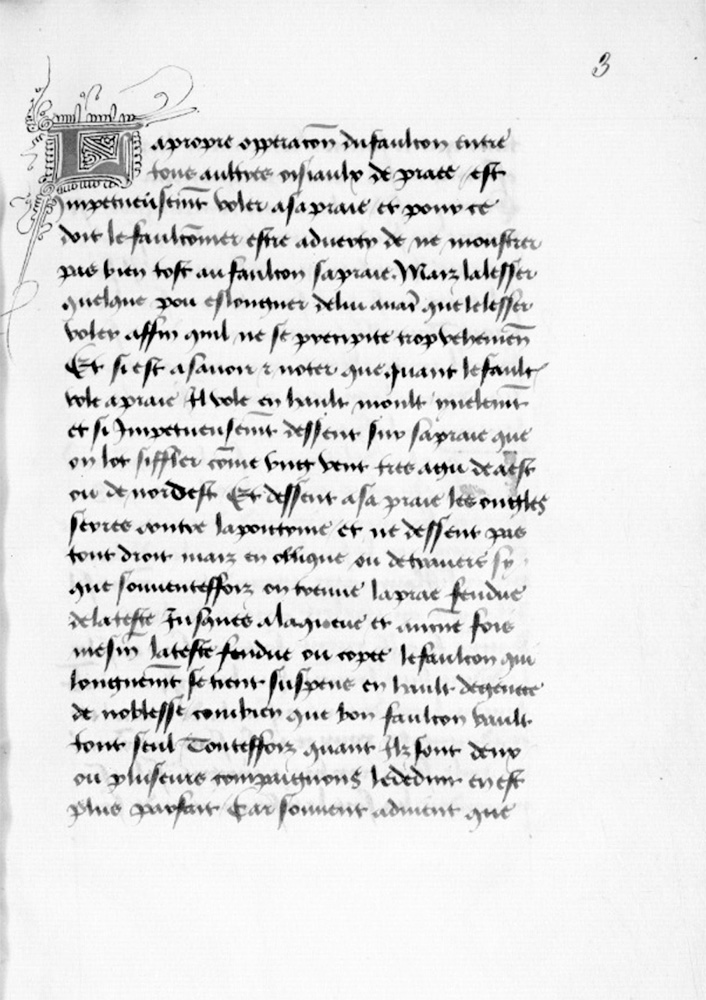 3
La propre opperacon du faulcon entre
tous aultres oisiaulx de praee est
Impetueusemt voler a sa praie et pour ce
doit le faulconner estre adverty de ne monstrer
pas bien tost au faulcon sa praie. Maiz la lesser
quelque pou eslongner de lui avat que le lesser
voler affin quil ne se precipite trop vehemen
Et si est a savoir & noter que quant le fault
vole a praie Il vole en hault moult ynelemt
et si Impetueusemt dessent sur sa praie que
on lot siffler come vng vent tres agu de aest
ou de nordest Et dessent a sa praie les ongles
serres contre la poitrine et ne dessent pas
tout droit maiz en oblique ou de travers sy
que souventeffoiz on treuve la prae fendue
de la teste Jusques a la queue et aucune fois
mesm la teste fendue ou copee le faulcon qui
longuemt se tient suspens en hault de gence
de noblesse combien que bon faulcon vault
tout seul Touteffoiz quant Ilz sont deux
ou plusieurs compaignons le deduit en est
plus parfait Car souvent advient que